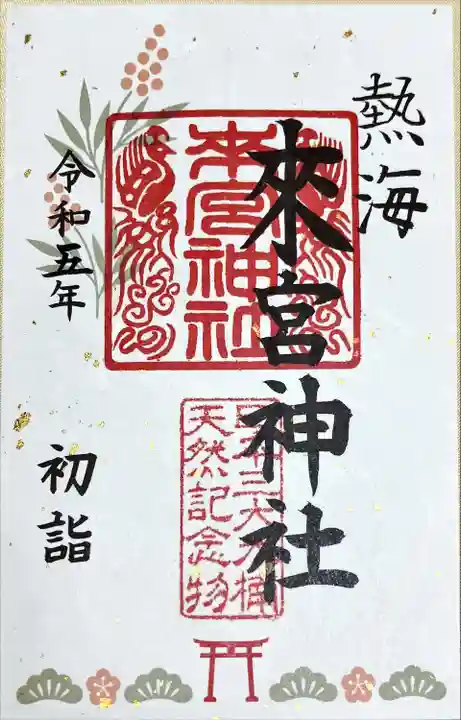 熱海
來宮神社
來宮神社
日本三大老樟
天然記念物
令和五年
初詣